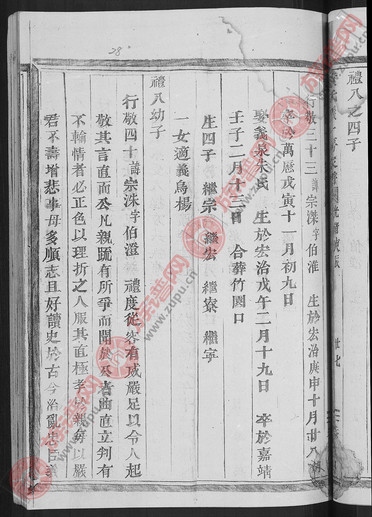 禮八之四子
行敬三十三諱宗潗字伯淮 生於宏治庚申十月廿八
卒於萬曆戊寅十一月初九日
娶義泉朱氏 生於宏治戊午二月十九日 卒於嘉靖
壬子二月十三日 合葬竹園口
生四子 繼宗 繼宏 繼寮 繼寧
一女適義烏楊
禮八幼子
行敬四十諱宗洙字伯澄 禮度從容有威嚴足以令人起
敬其言直而公凡親疏有所爭而關於尽者曲直立判有
不輸情者必正色以理折之人服其直極孝於親身以嚴
君不壽增悲事母多順志且好讀史於古今治亂忠臣義
28